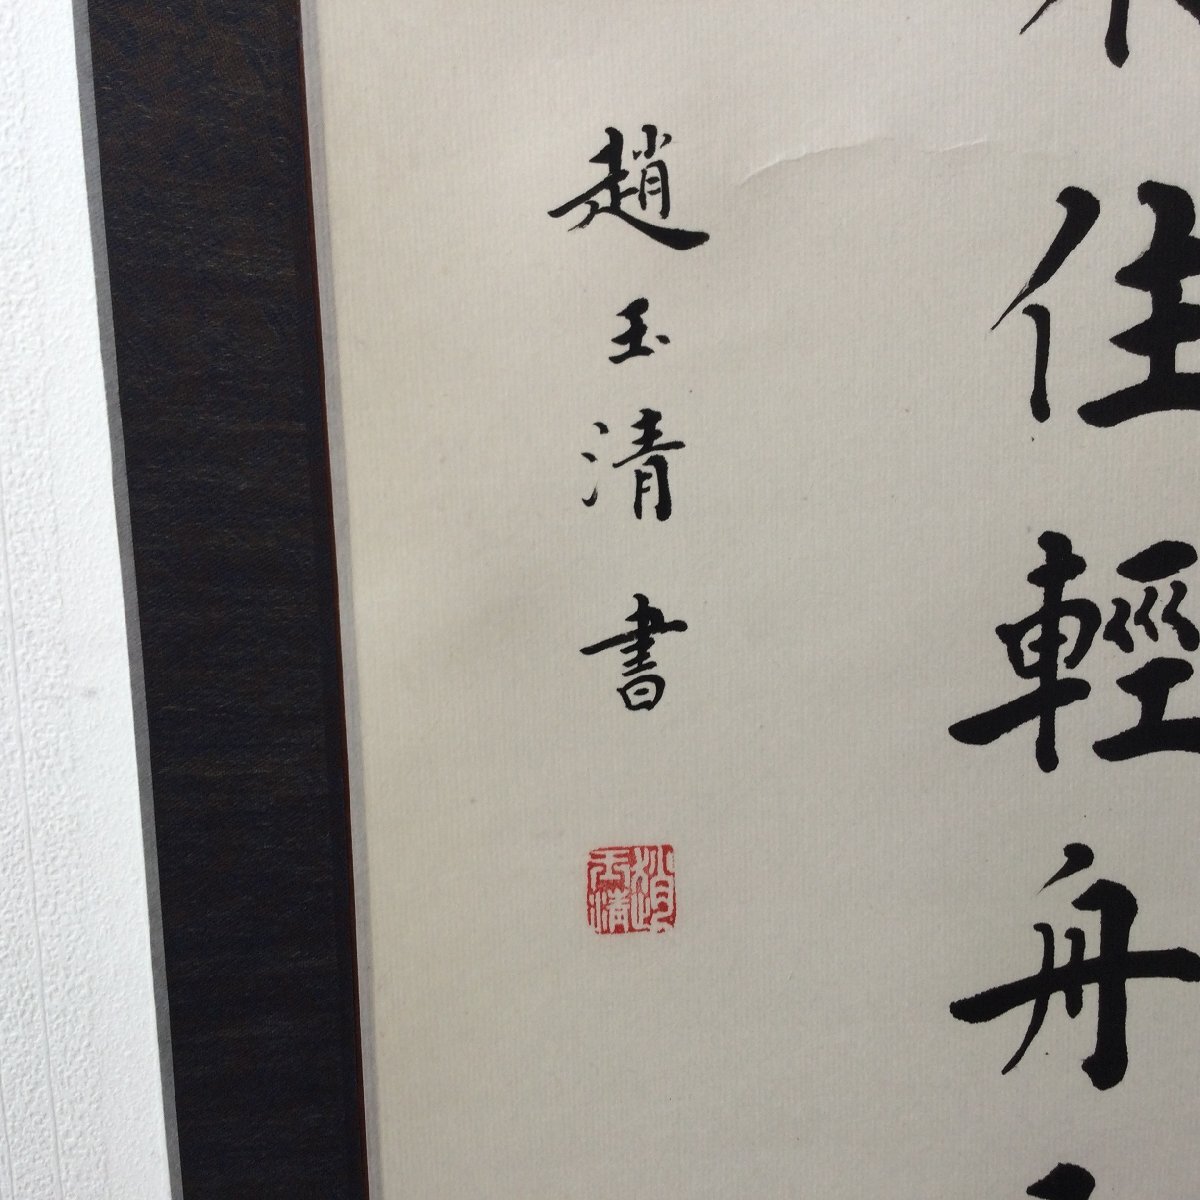 住輕舟
趙玉清書
趙玉清